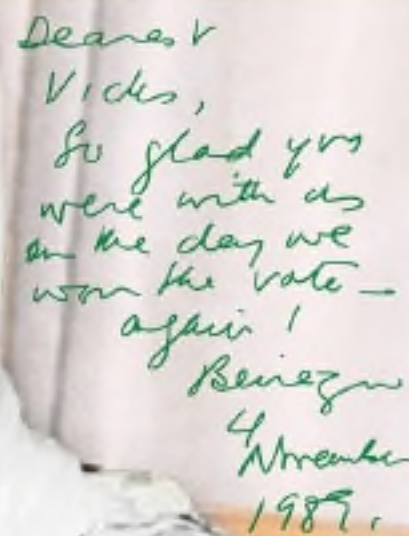 Dearest
Vicks,
So glad you
were with us
on the day we
won the vote —
again!
Benazir
4
November
1989.